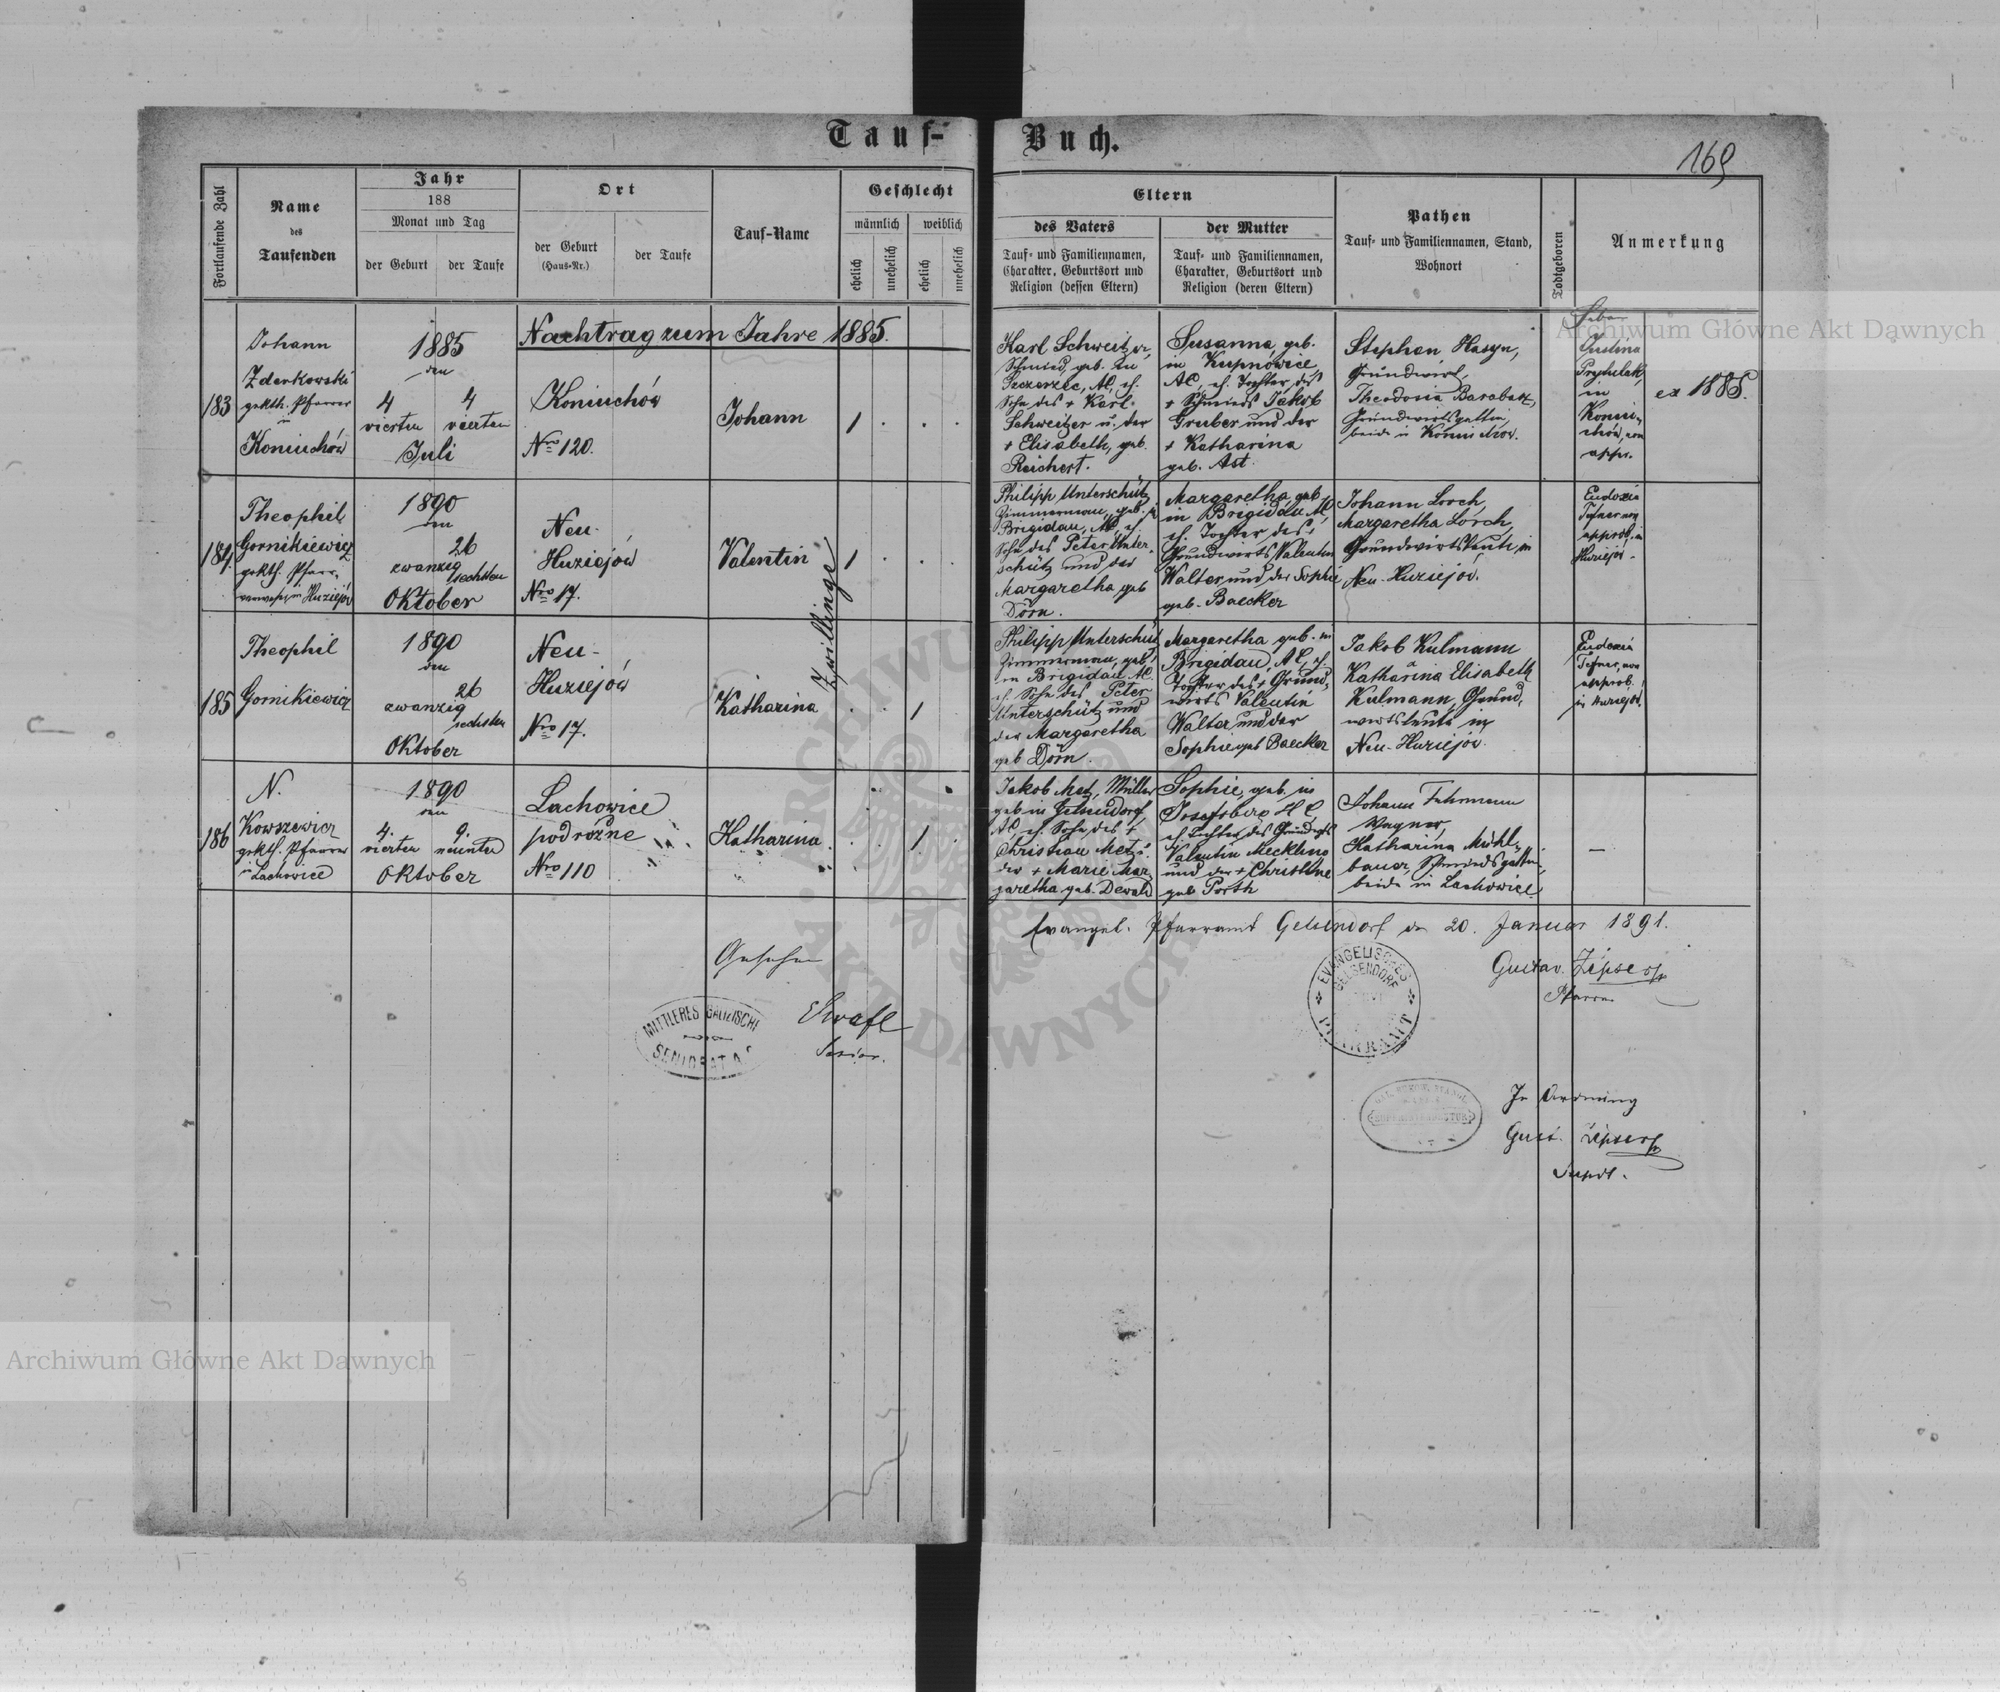 Tauf-
Buch.
169
Fortlaufende Zahl
Name
des
Taufenden
Jahr
188
Monat und Tag
der Geburt
der Taufe
Ort
der Geburt
(Haus-Nr.)
der Taufe
Tauf-Name
Geschlecht
männlich
weiblich
ehelich
unehelich
ehelich
unehelich
Eltern
des Vaters
Tauf- und Familiennamen,
Charakter, Geburtsort und
Religion (dessen Eltern)
der Mutter
Tauf- und Familiennamen,
Charakter, Geburtsort und
Religion (deren Eltern)
Pathen
Tauf- und Familiennamen, Stand,
Wohnort
Todtgeboren
Anmerkung
Nachtrag zum Jahre 1885.
183
Johann
Zderkowski
grkth. Pfarrer
in
Koniuchów
1885
den
4 4
vierten vierten
Juli
Koniuchów
Nro 120.
Johann
1 . . .
Karl Schweitzer,
Schmied, geb. in
AC, eh.
Sohn des + Karl
Schweitzer u. der
+ Elisabeth, geb.
Reichert.
Susanna geb.
in Kupnowice
AC, eh. Tochter des
+ Schmieds Jakob
Gruber und der
+ Katharina
geb. Ast.
Stephan Hasyn,
Grundwirt,
Theodosia Barabasz,
Grundwirtsgattin,
beide in Koniuchow.
Justina
Prydulak,
in
Koniu-
chów, non
appr.
ex 1885.
184.
Theophil
Gornikiewicz
grkth. Pfarr-
verweser in Huziejów
1890
den
26
zwanzig
sechsten
Oktober
Neu-
Huziejów
Nro 17.
Valentin
Zwillinge
1 . .
Philipp Unterschütz
Zimmerman, geb. in
Brigidau, AC, eh.
Sohn des Peter Unter-
schütz und der
Margaretha, geb
Dörn.
Margaretha, geb
in Brigidau AC
eh. Tochter des +
Grundwirts Valentin
Walter und der Sophie
geb. Baecker
Johann Lorch,
Margaretha Lorch,
Grundwirtsleute, in
Neu-Huziejów.
Eudoxia
non
approb. in
Huziejów.
185
Theophil
Gornikiewicz
1890
den
26
zwanzig
sechsten
Oktober
Neu-
Huziejów
Nro 17.
Katharina
. . 1 .
Philipp Unterschütz
Zimmerman, geb.
in Brigidau, AC.
eh. Sohn des Peter
Unterschütz und
der Margaretha
geb Dörn.
Margaretha geb. in
Brigidau, AC, eh.
Tochter des + Grund-
wirts Valentin
Walter und der
Sophie geb Baecker
Jakob Kulmann
Katharina Elisabeth
Kulmann, Grund-
wirtsleute in
Neu-Huziejów.
Eudoxia
non
approb.
in Huziejów.
186
N.
Kowszewicz
grkth. Pfarrer
in Lachowice
1890
den
4. 9.
vierten neunten
Oktober
Lachowice
podrožne
Nro 110
Katharina
. . 1 .
Jakob Metz, Müller
geb in Gelsendorf,
AC, eh. Sohn des +
Christian Metz u.
der + Marie Mar-
garetha geb. Dewald
Sophie, geb. in
Josefsberg HC,
eh Tochter des Grundwirts
Valentin Meckling
und der + Christine
geb Porth
Johann Fuhrmann
Wagner,
Katharina Mühl-
bauer, Schmiedsgattin,
beide in Lachowice.
Evangel. Pfarramt Gelsendorf den 20. Januar 1891.
Gustav Zipser
Pfarrer
EVANGELISCHES
GELSENDORF
PFARRAMT
Gesehen
MITTLERES GALIZISCHES
SENIORAT A.
Senior.
In Ordnung
Gust. Zipser
Supdt.
Archiwum Główne Akt Dawnych
Archiwum Główne Akt Dawnych
ARCHIWUM
AKT DAWNYCH